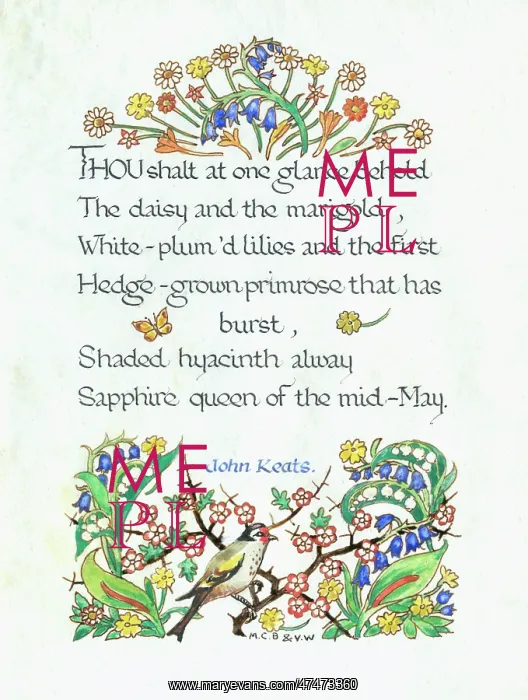 THOU shalt at one glance behold
The daisy and the marigold,
White-plum'd lilies and the first
Hedge-grown primrose that has
burst,
Shaded hyacinth alway
Sapphire queen of the mid-May.
John Keats.
M.C.B & V.W
ME
PL
ME
PL
www.maryevans.com/47473360